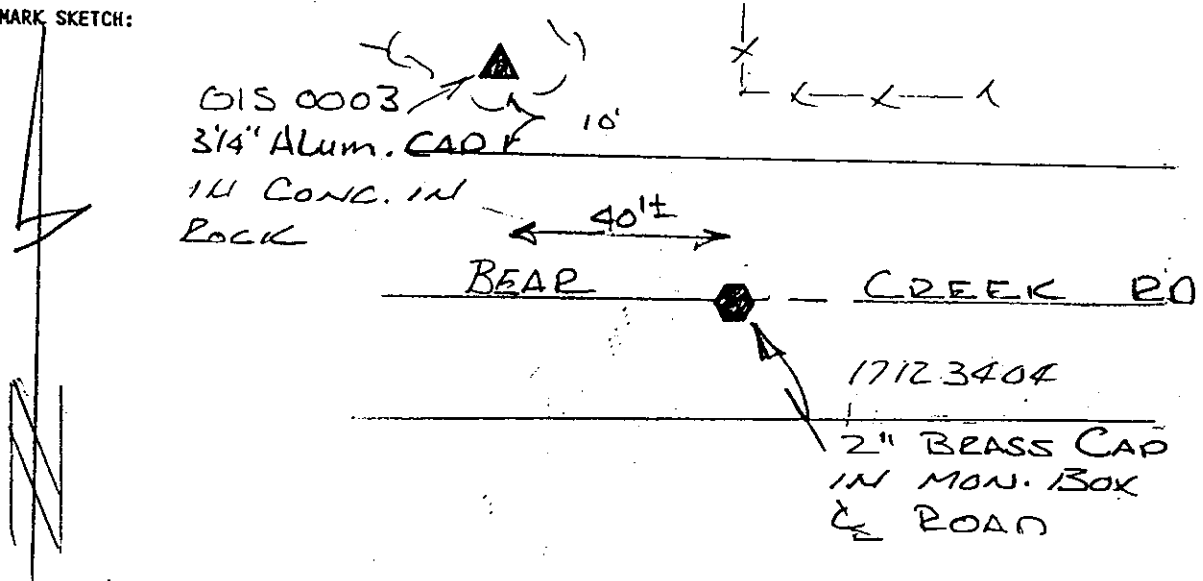 MARK SKETCH:
GIS 0003
3¼" Alum. CAP
IN CONC. IN
ROCK
10'
40'±
BEAR CREEK RD
17123404
2" BRASS CAP
IN MON. BOX
℄ ROAD
N